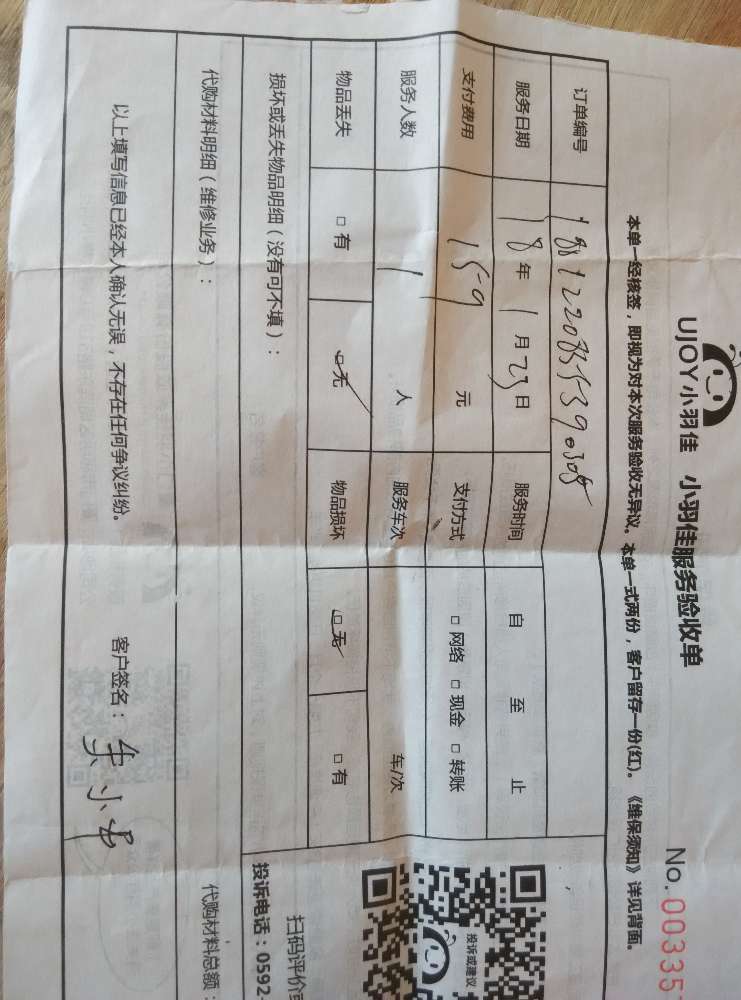 UJOY小羽佳 小羽佳服务验收单
No.00335
本单一经核签，即视为对本次服务验收无异议。本单一式两份，客户留存一份(红)。《维保须知》详见背面。
订单编号
服务日期 18年1月23日 服务时间 自 至 止
支付费用 159 元 支付方式 □ 网络 □ 现金 □ 转账
服务人数 1 人 服务车次 车/次
物品丢失 □ 有 □ 无 物品损坏 □ 无 □ 有
损坏或丢失物品明细（没有可不填）：
代购材料明细（维修业务）：
代购材料总额：
以上填写信息已经本人确认无误，不存在任何争议纠纷。 客户签名：
投诉或建议
扫码评价
投诉电话：0592-